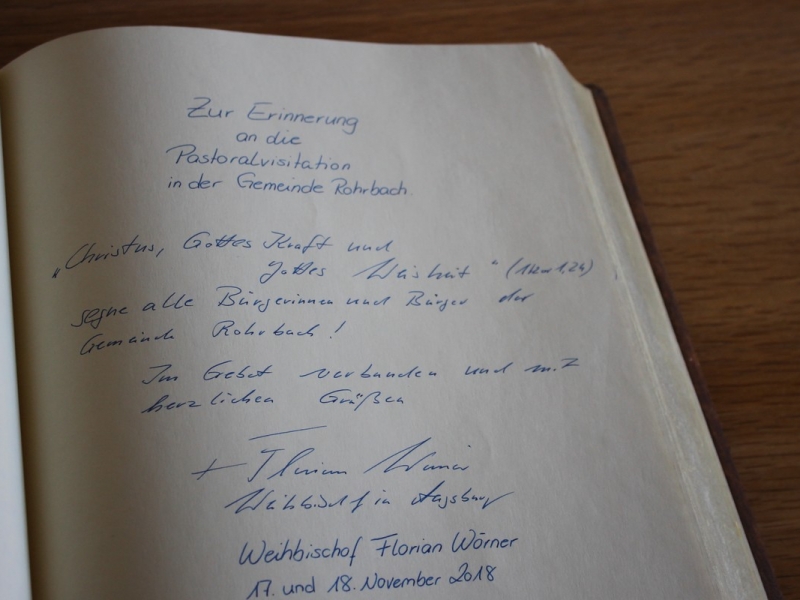 Zur Erinnerung
an die
Pastoralvisitation
in der Gemeinde Rohrbach.
„Christus, Gottes Kraft und
Gottes Weisheit" (1 Kor 1,24)
segne alle Bürgerinnen und Bürger der
Gemeinde Rohrbach!
Im Gebet verbunden und mit
herzlichen Grüßen
+ Florian Wörner
Weihbischof in Augsburg
Weihbischof Florian Wörner
17. und 18. November 2018